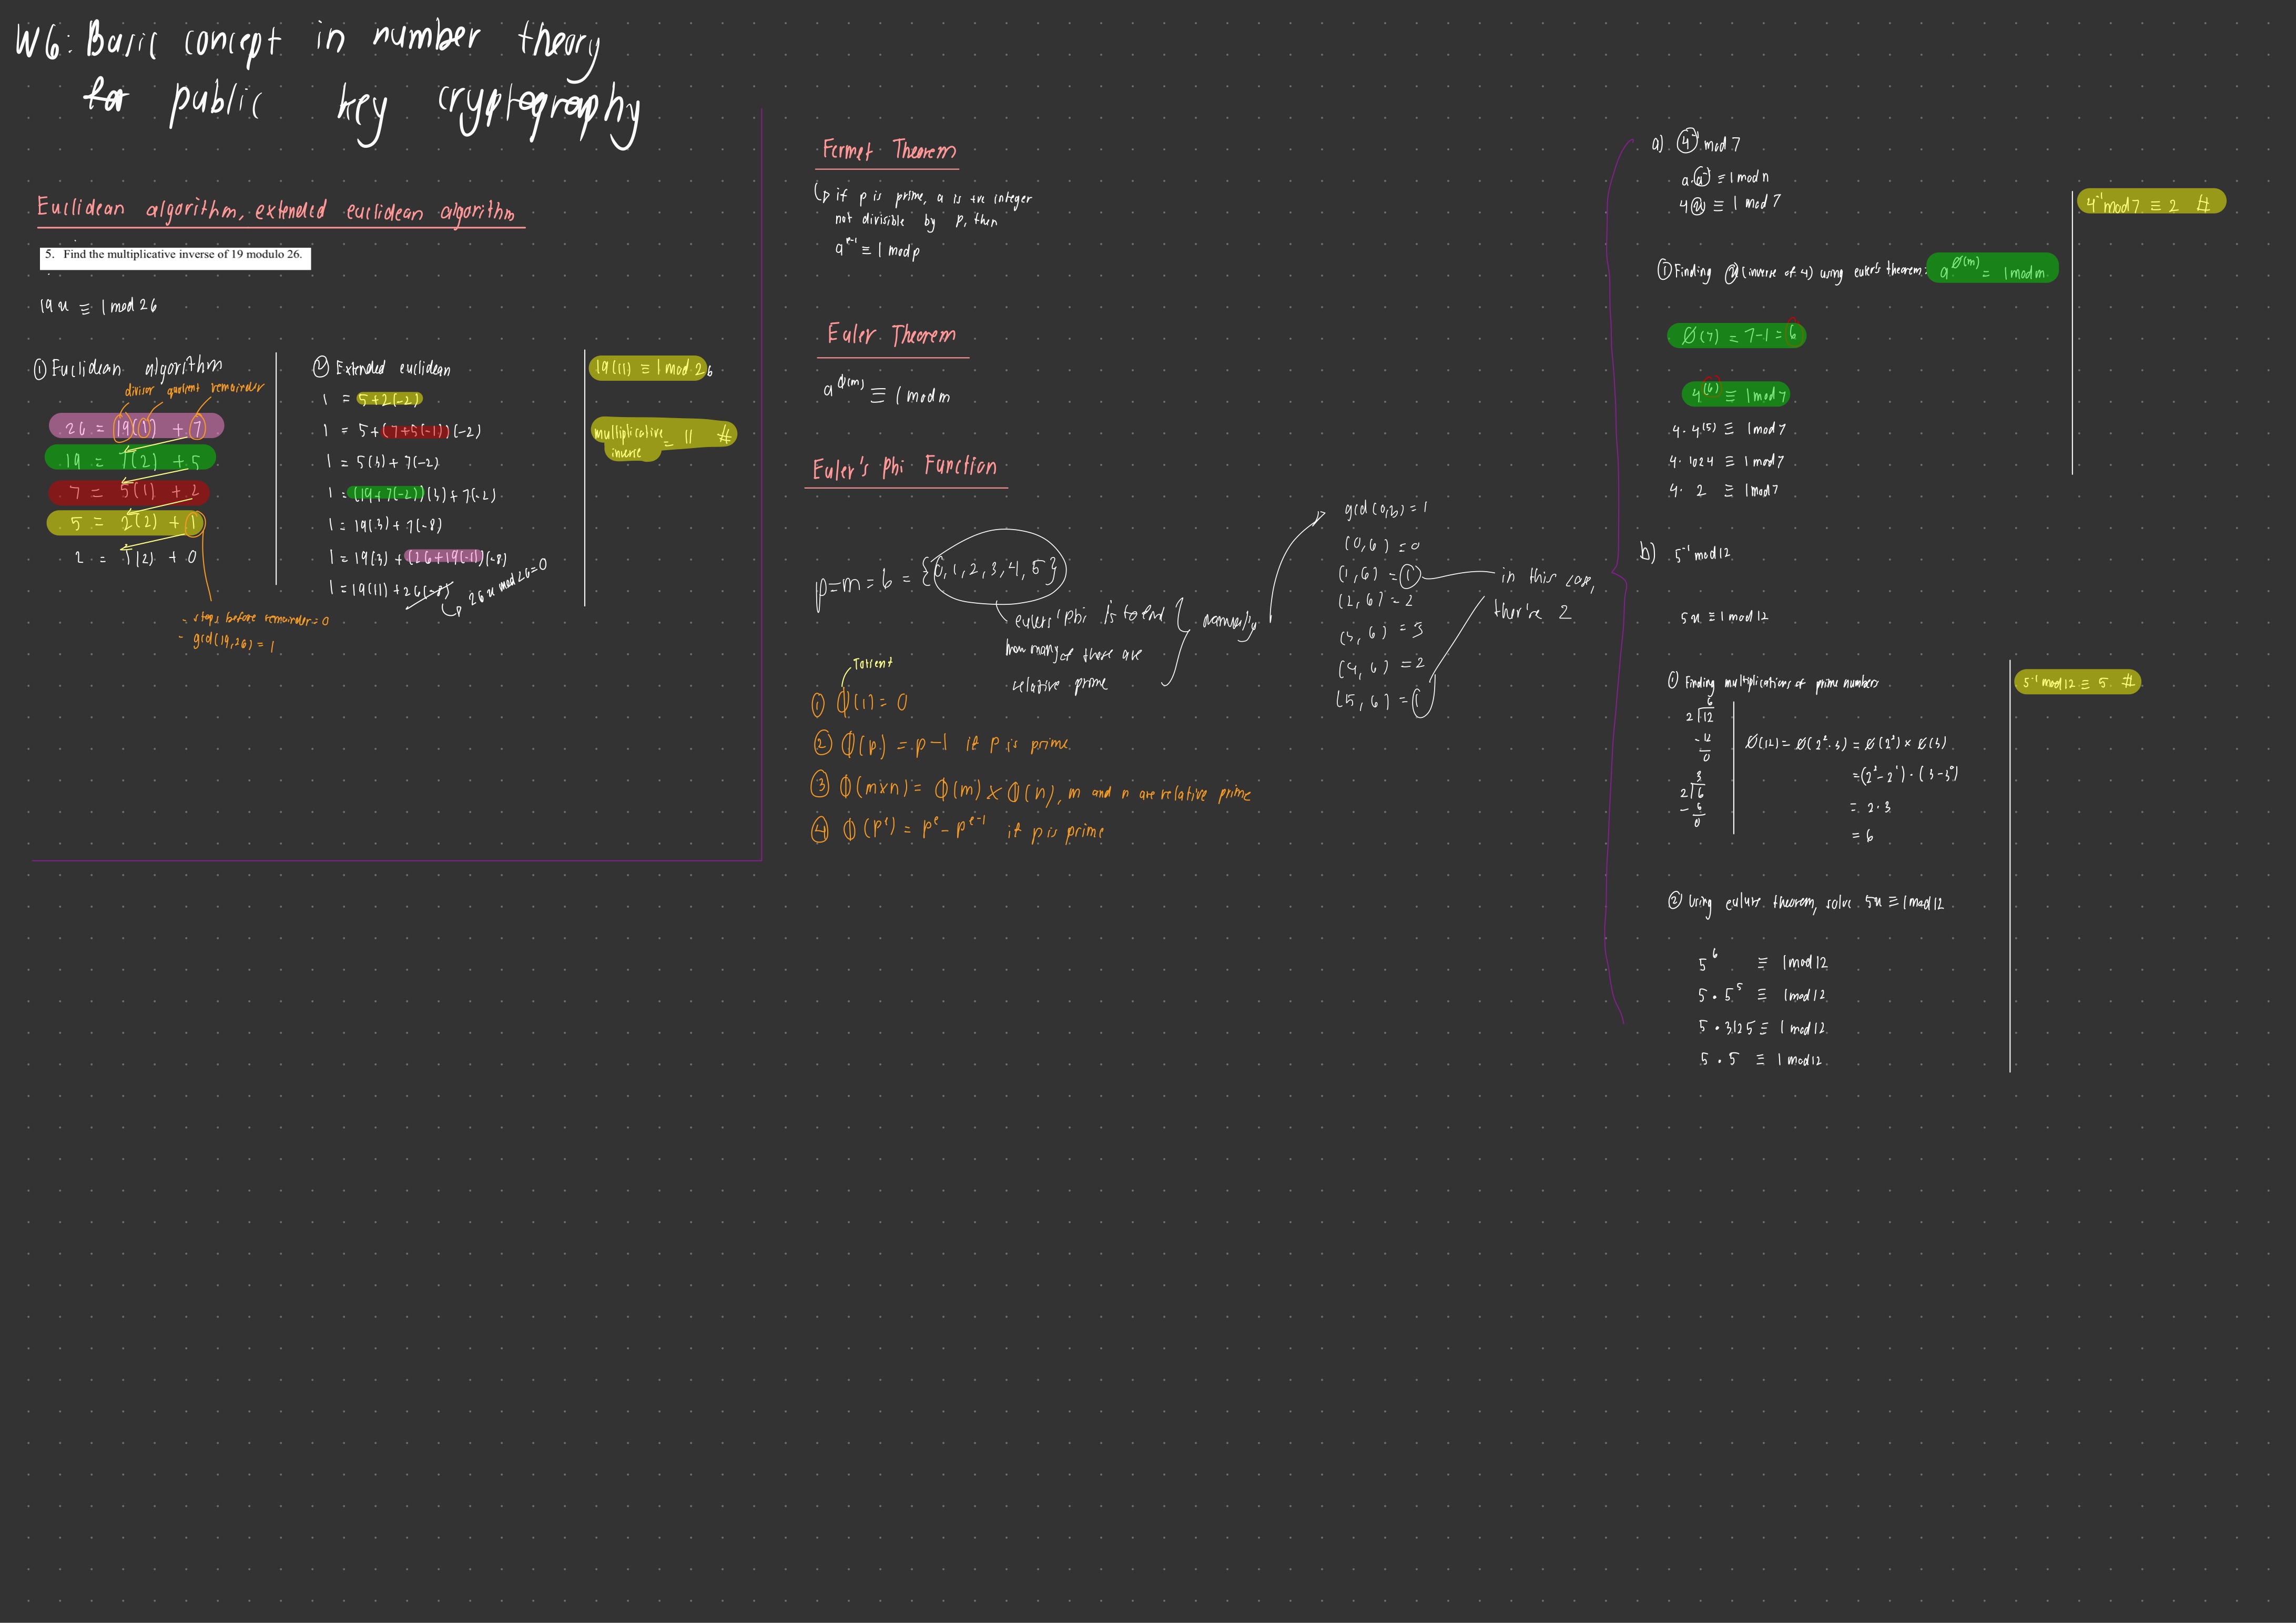 W6: Basic concept in number theory
for public key cryptography
Euclidean algorithm, extended euclidean algorithm
5. Find the multiplicative inverse of 19 modulo 26.
19x ≡ 1 mod 26
① Euclidean algorithm
divisor quotient remainder
26 = 19(1) + 7
19 = 7(2) + 5
7 = 5(1) + 2
5 = 2(2) + 1
2 = 1(2) + 0
- stops before remainder = 0
- gcd(19,26) = 1
② Extended euclidean
1 = 5+2(-2)
1 = 5+(7+5(-1))(-2)
1 = 5(3) + 7(-2)
1 = (19+7(-2))(3) + 7(-2)
1 = 19(3) + 7(-8)
1 = 19(3) + (26+19(-1))(-8)
1 = 19(11) + 26(-8)
26x mod 26=0
19(11) ≡ 1 mod 26
multiplicative = 11 #
inverse
Fermet Theorem
↳ if p is prime, a is +ve integer
not divisible by p, then
a^p-1 ≡ 1 mod p
Euler Theorem
a^ϕ(m) ≡ 1 mod m
Euler's phi Function
p=m=6 = {0,1,2,3,4,5}
eulers' phi is to
how many of those are
relative prime
manually
gcd(0,6) = 1
(0,6) = 0
(1,6) = 1
(2,6) = 2
(3,6) = 3
(4,6) = 2
(5,6) = 1
in this case,
ther're 2
Totient
① ϕ(1) = 0
② ϕ(p) = p-1 if p is prime
③ ϕ(m×n) = ϕ(m) × ϕ(n), m and n are relative prime
④ ϕ(p^e) = p^e - p^e-1 if p is prime
a) 4^-1 mod 7
a·a^-1 ≡ 1 mod n
4(x) ≡ 1 mod 7
① Finding x (inverse of 4) using euler's theorem: a^Ø(m) = 1 mod m
Ø(7) = 7-1 = 6
4^(6) ≡ 1 mod 7
4·4^(5) ≡ 1 mod 7
4·1024 ≡ 1 mod 7
4· 2 ≡ 1 mod 7
4^-1 mod 7 ≡ 2 #
b) 5^-1 mod 12
5x ≡ 1 mod 12
① Finding multiplications of prime numbers
6
2 12
-12
0
3
2 6
- 6
0
Ø(12) = Ø(2^2·3) = Ø(2^2) × Ø(3)
= (2^2-2^1)·(3-3^0)
= 2·3
= 6
5^-1 mod 12 ≡ 5 #
② Using eulure theorem, solve 5x ≡ 1 mod 12
5^6 ≡ 1 mod 12
5·5^5 ≡ 1 mod 12
5·3125 ≡ 1 mod 12
5·5 ≡ 1 mod 12